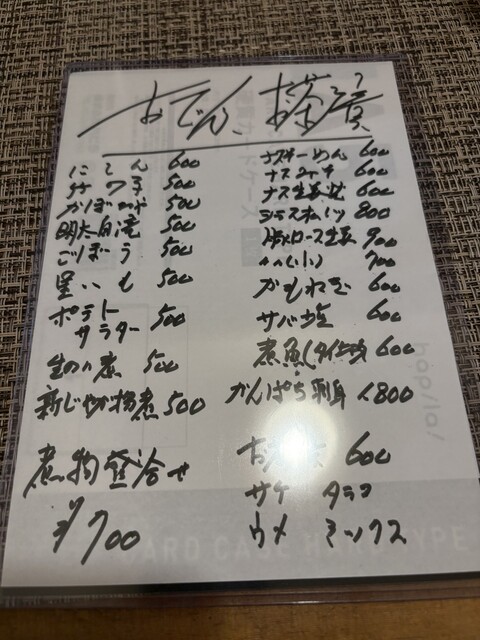 おでん、お惣菜
にしん 600
竹の子 500
かぼちゃ 500
明太白滝 500
ごぼう 500
里いも 500
ポテト
サラダー 500
生のり煮 500
新じゃが揚煮 500
煮物盛合せ
¥700
ナス 600
ナス 600
ナス生姜 600
シラス 800
ロース生姜 900
(小) 700
かもねぎ 600
サバ塩 600
煮魚 600
かんぱち刺身 800
お 600
サケ タラコ
ウメ ミックス
CARD CASE HARD TYPE